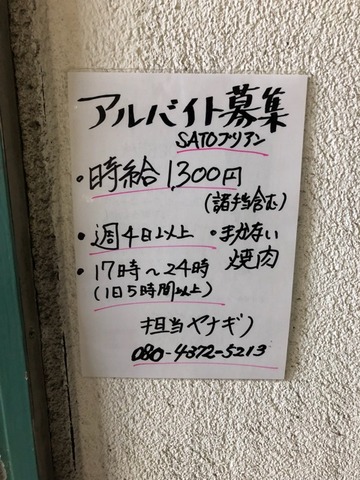 アルバイト募集
SATOブリアン
・時給1,300円
(諸手当含む)
・週4日以上 ・まかない
焼肉
・17時〜24時
(1日5時間以上)
担当ヤナギ)
080-4372-5213